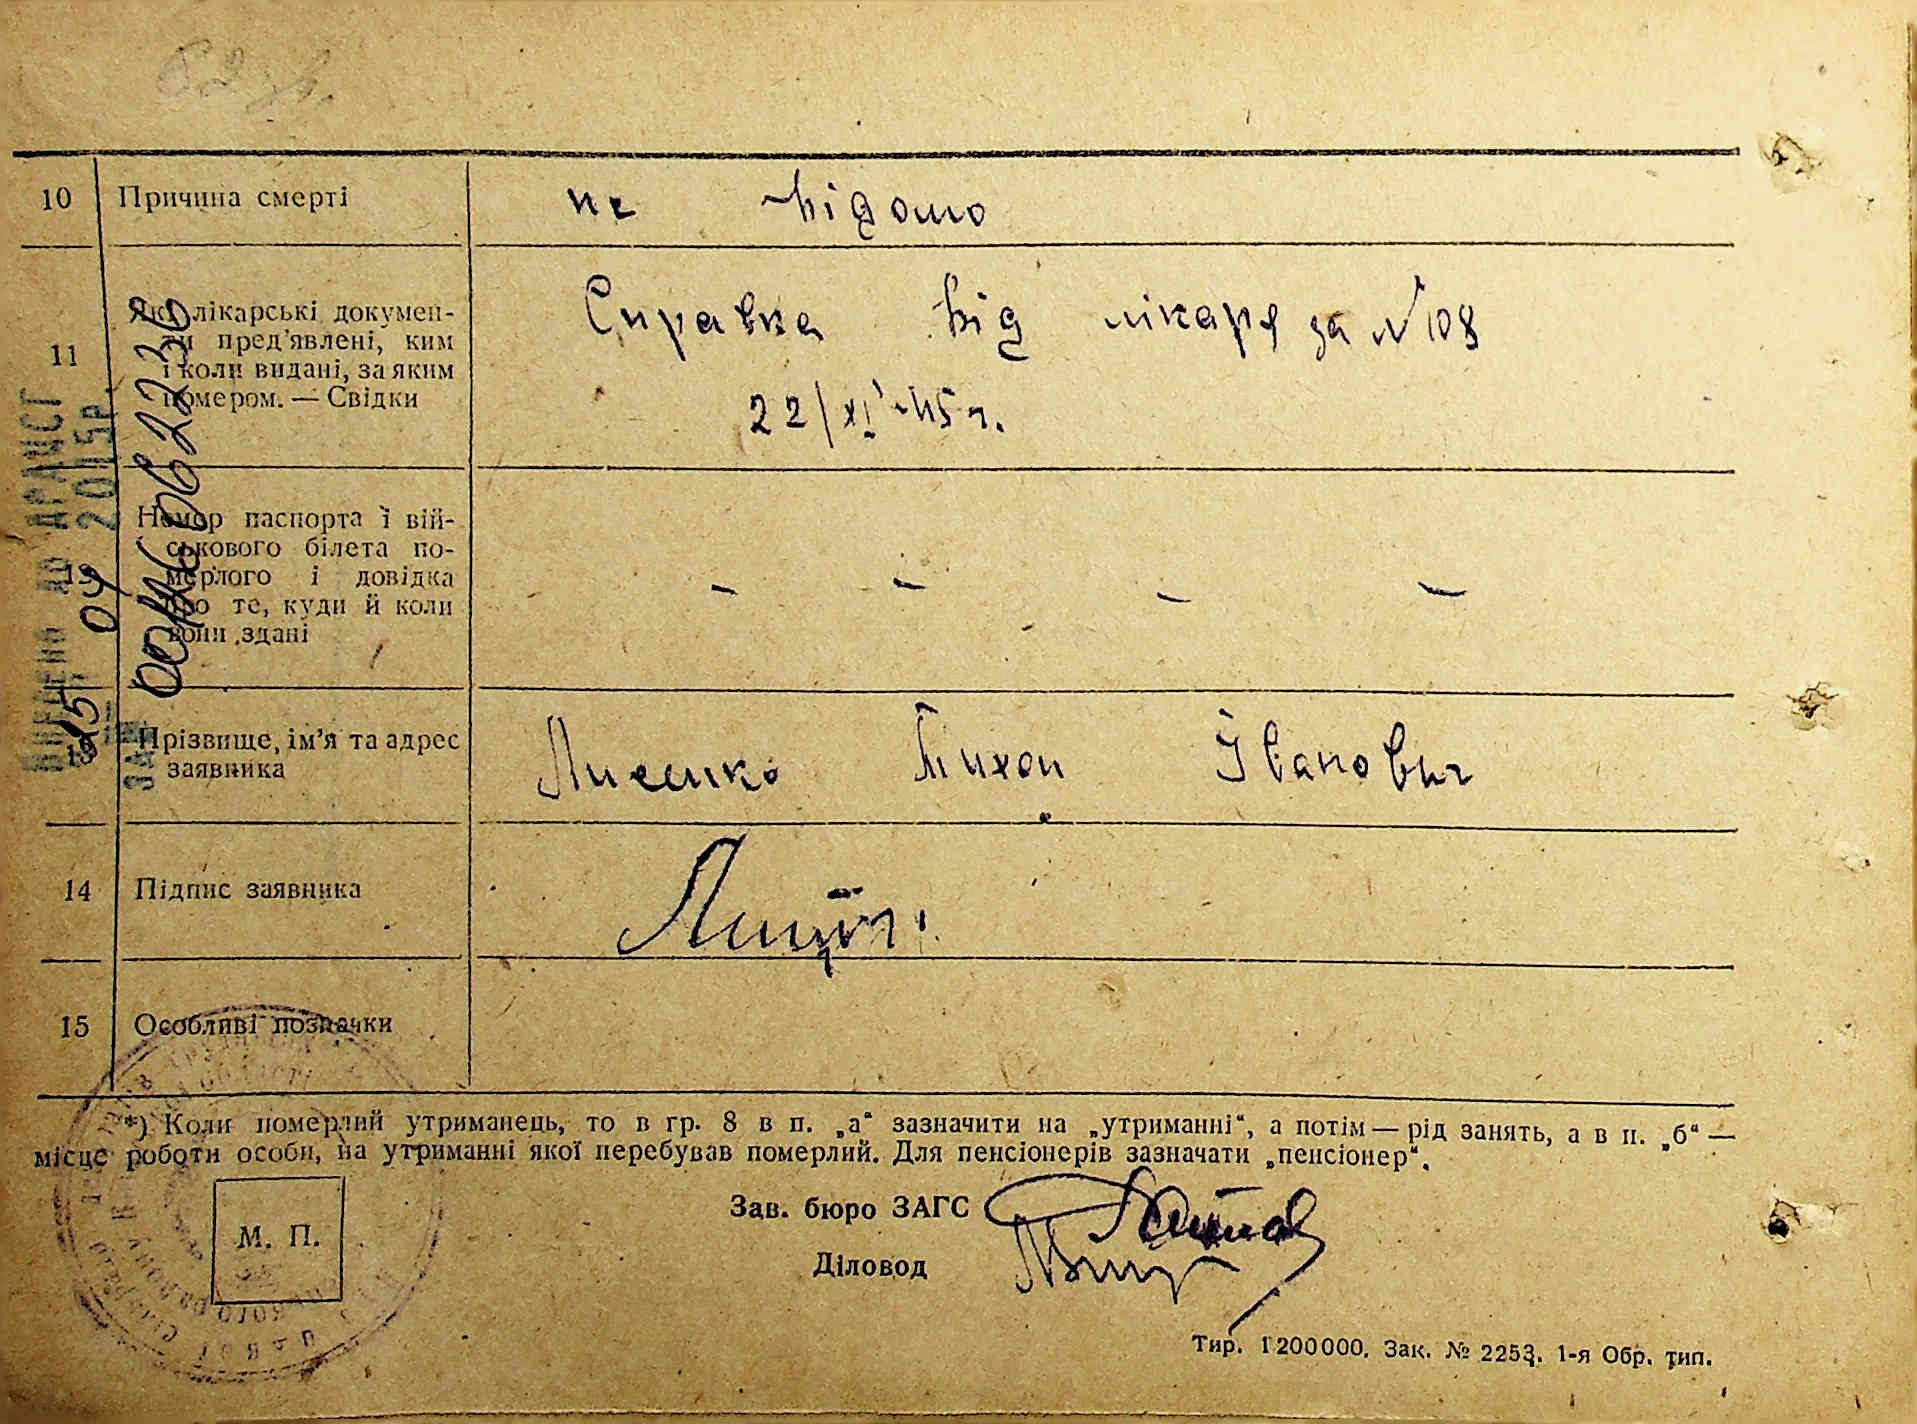 10 Причина смерті не відомо
11 Які лікарські докумен-
ти пред'явлені, ким
і коли видані, за яким
номером. — Свідки
Справка від лікаря за № 108
22/XI-45 г.
12 Номер паспорта і вій-
ськового білета по-
мерлого і довідка
про те, куди й коли
вони здані
– – – –
13 Прізвище, ім'я та адрес
заявника
Лисенко Тихон Іванович
14 Підпис заявника
15 Особливі позначки
*) Коли померлий утриманець, то в гр. 8 в п. „а“ зазначити на „утриманні“, а потім — рід занять, а в п. „б“ —
місце роботи особи, на утриманні якої перебував померлий. Для пенсіонерів зазначати „пенсіонер“.
М. П.
Зав. бюро ЗАГС
Діловод
Тир. 1200000. Зак. № 2253. 1-я Обр. тип.
ВНЕСЕНО ДО ДРАЦСГ
15 04 2015р.
ЗА №
00066622236